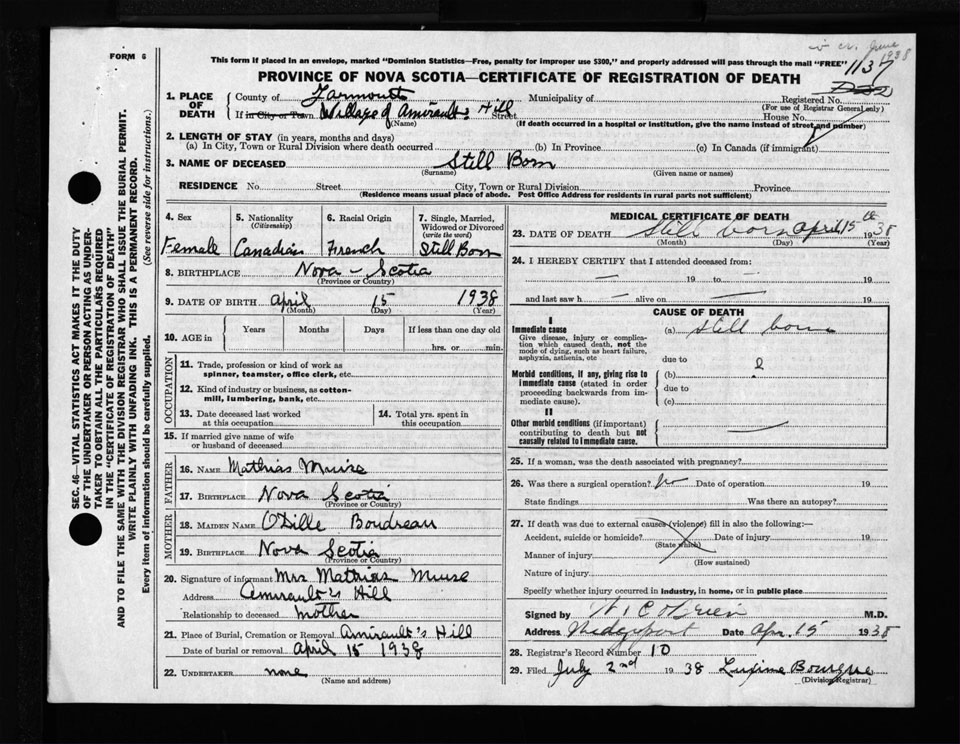 June 1938
FORM 6
This form if placed in an envelope, marked "Dominion Statistics—Free, penalty for improper use $300," and properly addressed will pass through the mail "FREE"
1137
PROVINCE OF NOVA SCOTIA—CERTIFICATE OF REGISTRATION OF DEATH
1. PLACE OF DEATH
County of Yarmouth Municipality of Registered No.
(For use of Registrar General only)
If in City or Town Village of Amirault's Hill Street House No.
(Name) (If death occurred in a hospital or institution, give the name instead of street and number)
2. LENGTH OF STAY (in years, months and days)
(a) In City, Town or Rural Division where death occurred (b) In Province (c) In Canada (if immigrant)
3. NAME OF DECEASED Still Born
(Surname) (Given name or names)
RESIDENCE No. Street City, Town or Rural Division Province
(Residence means usual place of abode. Post Office Address for residents in rural parts not sufficient)
SEC. 46—VITAL STATISTICS ACT MAKES IT THE DUTY
OF THE UNDERTAKER OR PERSON ACTING AS UNDER-
TAKER TO OBTAIN ALL THE PARTICULARS REQUIRED
IN THE "CERTIFICATE OF REGISTRATION OF DEATH"
AND TO FILE THE SAME WITH THE DIVISION REGISTRAR WHO SHALL ISSUE THE BURIAL PERMIT.
WRITE PLAINLY WITH UNFADING INK. THIS IS A PERMANENT RECORD.
Every item of information should be carefully supplied. (See reverse side for instructions.)
4. Sex
Female
5. Nationality
(Citizenship)
Canadian
6. Racial Origin
French
7. Single, Married,
Widowed or Divorced
(write the word)
Still Born
8. BIRTHPLACE Nova - Scotia
(Province or Country)
9. DATE OF BIRTH April 15 1938
(Month) (Day) (Year)
10. AGE in
Years Months Days If less than one day old
hrs. or min.
OCCUPATION
11. Trade, profession or kind of work as
spinner, teamster, office clerk, etc.
12. Kind of industry or business, as cotton-
mill, lumbering, bank, etc.
13. Date deceased last worked
at this occupation
14. Total yrs. spent in
this occupation
15. If married give name of wife
or husband of deceased
FATHER
16. NAME Mathias Muise
17. BIRTHPLACE Nova Scotia
(Province or Country)
MOTHER
18. MAIDEN NAME Odille Boudreau
19. BIRTHPLACE Nova Scotia
(Province or Country)
20. Signature of informant Mrs Mathias Muise
Address Amirault's Hill
Relationship to deceased mother
21. Place of Burial, Cremation or Removal Amirault's Hill
Date of burial or removal April 15 1938
22. UNDERTAKER none
(Name and address)
MEDICAL CERTIFICATE OF DEATH
23. DATE OF DEATH Still born April 15th 1938
(Month) (Day) (Year)
24. I HEREBY CERTIFY that I attended deceased from:
— 19 to — 19
and last saw h — alive on — 19
CAUSE OF DEATH
I
Immediate cause
Give disease, injury or complica-
tion which caused death, not the
mode of dying, such as heart failure,
asphyxia, asthenia, etc
(a) Still born
due to
Morbid conditions, if any, giving rise to
immediate cause (stated in order
proceeding backwards from im-
mediate cause).
(b) ?
due to
(c)
II
Other morbid conditions (if important)
contributing to death but not
causally related to immediate cause. —
25. If a woman, was the death associated with pregnancy?
26. Was there a surgical operation? No Date of operation 19
State findings Was there an autopsy?
27. If death was due to external causes (violence) fill in also the following:—
Accident, suicide or homicide? Date of injury 19
(State which)
Manner of injury
(How sustained)
Nature of injury
Specify whether injury occurred in industry, in home, or in public place
Signed by W. C O'Brien M.D.
Address Wedgeport Date Apr. 15 1938
28. Registrar's Record Number 10
29. Filed July 2nd 1938 Luxime Bourque
(Division Registrar)